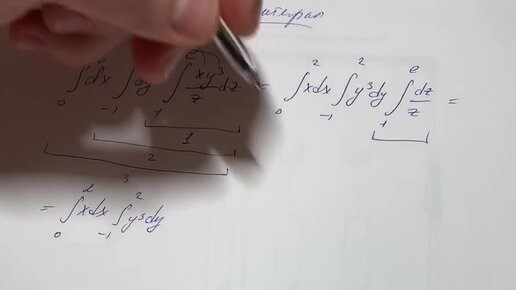 ∫₀ dx ∫₋₁ dy ∫₁^e xy³/z dz = ∫₀² xdx ∫₋₁² y³dy ∫₁^e dz/z =
1
2
3
= ∫₀² xdx ∫₋₁² y³dy